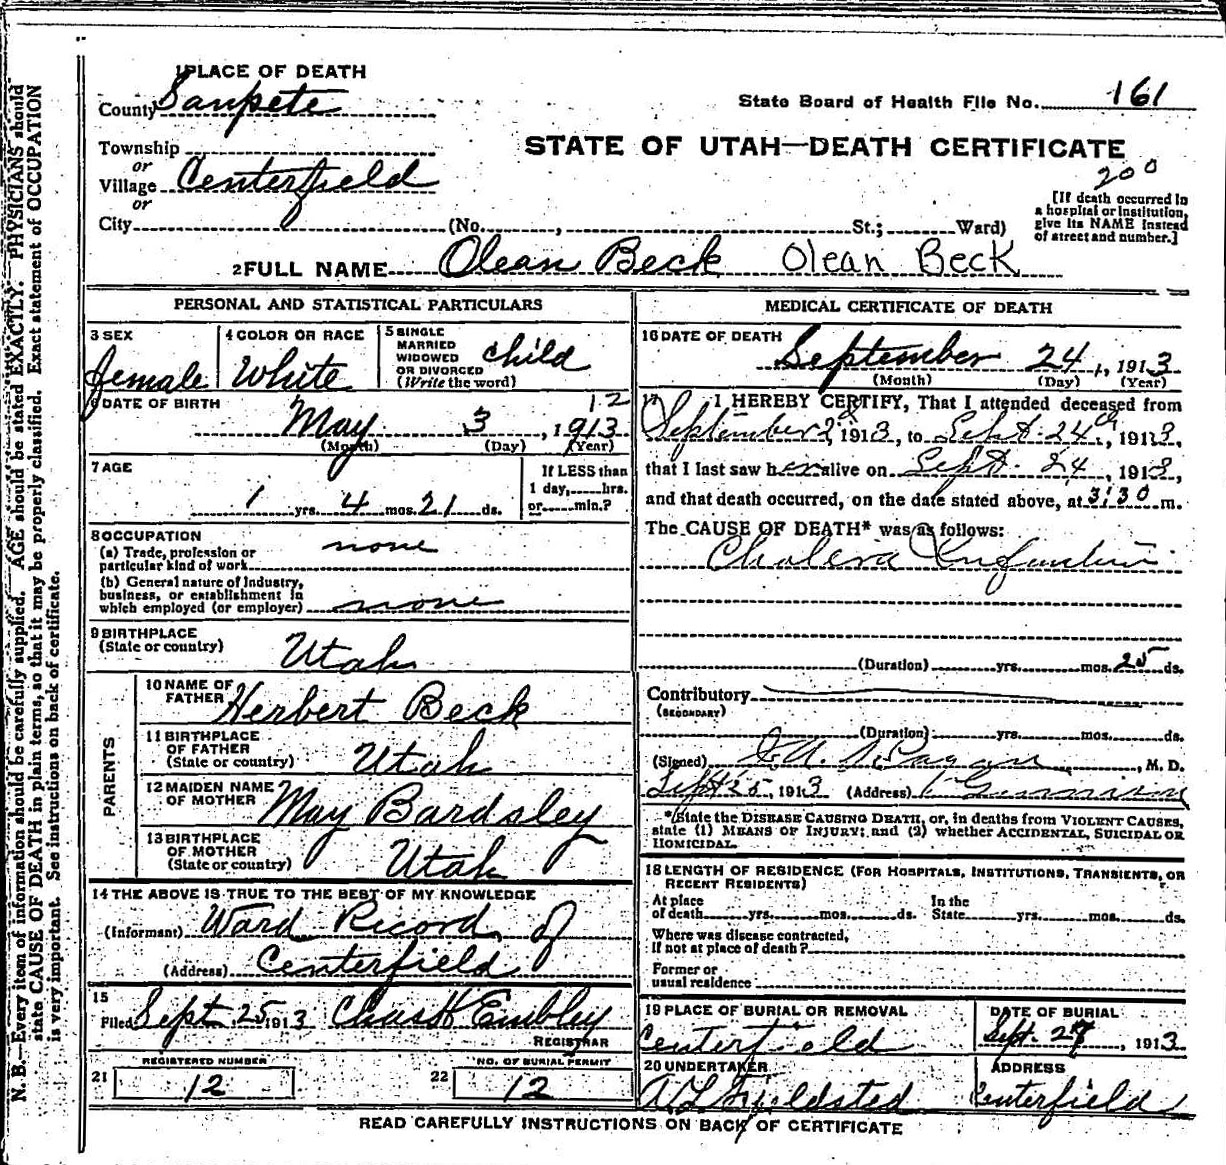 1 PLACE OF DEATH
County Sanpete
State Board of Health File No. 161
Township
or
Village Centerfield
or
City (No. , St.; Ward)
STATE OF UTAH—DEATH CERTIFICATE
200
[If death occurred in
a hospital or institution,
give its NAME instead
of street and number.]
2 FULL NAME Olean Beck Olean Beck
PERSONAL AND STATISTICAL PARTICULARS
3 SEX
female
4 COLOR OR RACE
White
5 SINGLE
MARRIED
WIDOWED
OR DIVORCED
(Write the word)
child
6 DATE OF BIRTH
12
May 3, 1913
(Month) (Day) (Year)
7 AGE
1 yrs. 4 mos. 21 ds.
If LESS than
1 day, hrs.
or min.?
8 OCCUPATION
(a) Trade, profession or
particular kind of work none
(b) General nature of Industry,
business, or establishment in
which employed (or employer) none
9 BIRTHPLACE
(State or country) Utah
PARENTS
10 NAME OF
FATHER Herbert Beck
11 BIRTHPLACE
OF FATHER
(State or country) Utah
12 MAIDEN NAME
OF MOTHER May Bardsley
13 BIRTHPLACE
OF MOTHER
(State or country) Utah
14 THE ABOVE IS TRUE TO THE BEST OF MY KNOWLEDGE
(Informant) Ward Record of
(Address) Centerfield
15
Filed Sept. 25 1913 Chas H Embley
REGISTRAR
REGISTERED NUMBER
21 12
NO. OF BURIAL PERMIT
22 12
MEDICAL CERTIFICATE OF DEATH
16 DATE OF DEATH
September 24, 1913
(Month) (Day) (Year)
17 I HEREBY CERTIFY, That I attended deceased from
September 2d 1913, to Sept. 24th, 1913,
that I last saw her alive on Sept. 24, 1913,
and that death occurred, on the date stated above, at 3:30 m.
The CAUSE OF DEATH* was as follows:
Cholera Infantum
(Duration) yrs. mos. 25 ds.
Contributory
(SECONDARY)
(Duration) yrs. mos. ds.
(Signed) , M. D.
Sept 25, 1913 (Address) Gunnison
*State the DISEASE CAUSING DEATH, or, in deaths from VIOLENT CAUSES,
state (1) MEANS OF INJURY; and (2) whether ACCIDENTAL, SUICIDAL OR
HOMICIDAL.
18 LENGTH OF RESIDENCE (FOR HOSPITALS, INSTITUTIONS, TRANSIENTS, OR
RECENT RESIDENTS)
At place
of death yrs. mos. ds.
In the
State yrs. mos. ds.
Where was disease contracted,
If not at place of death?
Former or
usual residence
19 PLACE OF BURIAL OR REMOVAL
Centerfield
DATE OF BURIAL
Sept. 27, 1913
20 UNDERTAKER
A L Fjeldsted
ADDRESS
Centerfield
READ CAREFULLY INSTRUCTIONS ON BACK OF CERTIFICATE
N. B.—Every item of information should be carefully supplied. AGE should be stated EXACTLY. PHYSICIANS should
state CAUSE OF DEATH in plain terms, so that it may be properly classified. Exact statement of OCCUPATION
is very important. See instructions on back of certificate.